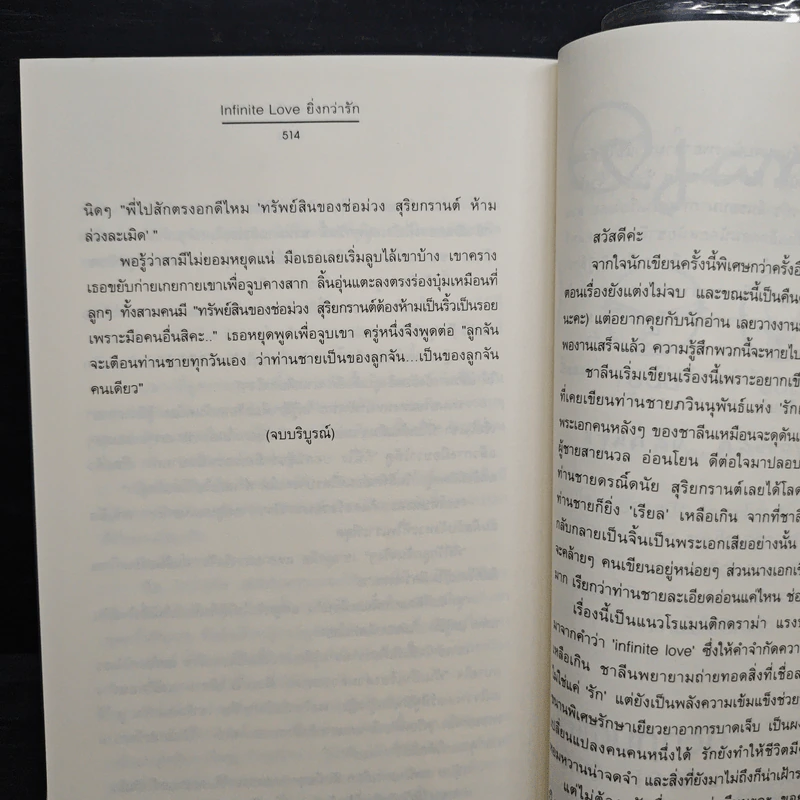 Infinite Love ยิ่งกว่ารัก
514
นิดๆ "พี่ไปสักตรงอกดีไหม 'ทรัพย์สินของช่อม่วง สุริยกรานต์ ห้าม
ล่วงละเมิด' "
พอรู้ว่าสามีไม่ยอมหยุดแน่ มือเธอเลยเริ่มลูบไล้เขาบ้าง เขาคราง
เธอขยับก่ายเกยกายเขาเพื่อจูบคางสาก ลิ้นอุ่นแตะลงตรงร่องบุ๋มเหมือนที่
ลูกๆ ทั้งสามคนมี "ทรัพย์สินของช่อม่วง สุริยกรานต์ต้องห้ามเป็นริ้วเป็นรอย
เพราะมือคนอื่นสิคะ.." เธอหยุดพูดเพื่อจูบเขา ครู่หนึ่งจึงพูดต่อ "ลูกจัน
จะเตือนท่านชายทุกวันเอง ว่าท่านชายเป็นของลูกจัน...เป็นของลูกจัน
คนเดียว"
(จบบริบูรณ์)
สวัสดีค่ะ
จากใจนักเขียนครั้งนี้พิเศษกว่าครั้ง
ตอนเรื่องยังแต่งไม่จบ และขณะนี้เป็นคืน
นะคะ) แต่อยากคุยกับนักอ่าน เลยวางงาน
พองานเสร็จแล้ว ความรู้สึกพวกนี้จะหายไป
ชาลีนเริ่มเขียนเรื่องนี้เพราะอยากเขี
ที่เคยเขียนท่านชายภวินนุพันธ์แห่ง 'รัก
พระเอกคนหลังๆ ของชาลีนเหมือนจะดุดัน
ผู้ชายสายนวล อ่อนโยน ดีต่อใจมาปลอบ
ท่านชายดรณิ์ดนัย สุริยกรานต์เลยได้โลด
ท่านชายก็ยิ่ง 'เรียล' เหลือเกิน จากที่ชาลี
กลับกลายเป็นจิ้นเป็นพระเอกเสียอย่างนั้น
จะคล้ายๆ คนเขียนอยู่หน่อยๆ ส่วนนางเอก
มาก เรียกว่าท่านชายละเอียดอ่อนแค่ไหน ช่อ
เรื่องนี้เป็นแนวโรแมนติกดราม่า แรง
มาจากคำว่า 'infinite love' ซึ่งให้คำจำกัดความ
เหลือเกิน ชาลีนพยายามถ่ายทอดสิ่งที่เชื่อ
ไม่ใช่แค่ 'รัก' แต่ยังเป็นพลังความเข้มแข็งช่วย
พิเศษรักษาเยียวยาอาการบาดเจ็บ เป็น
เปลี่ยนแปลงคนคนหนึ่งได้ รักยังทำให้ชีวิตมี
หวานน่าจดจำ และสิ่งที่ยังมาไม่ถึงก็น่าเฝ้า